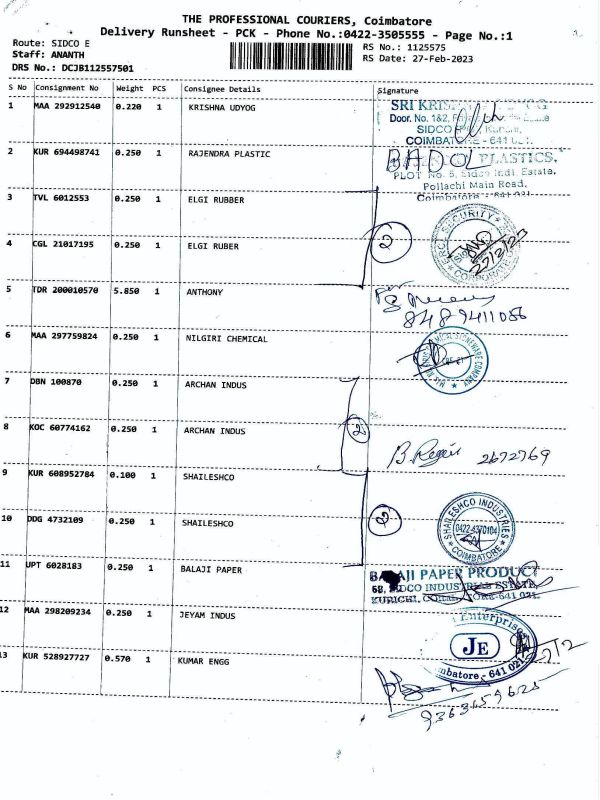 THE PROFESSIONAL COURIERS, Coimbatore
Delivery Runsheet - PCK - Phone No.:0422-3505555 - Page No.:1
Route: SIDCO E
Staff: ANANTH
DRS No.: DCJB112557501
RS No.: 1125575
RS Date: 27-Feb-2023
S No Consignment No Weight PCS Consignee Details Signature
1 MAA 292912540 0.220 1 KRISHNA UDYOG
Door. No. 1&2,
SIDCO
COIMBATORE - 641 021.
2 KUR 694498741 0.250 1 RAJENDRA PLASTIC
PLASTICS.
PLOT No. 5, Sidco Indl. Estate.
Pollachi Main Road,
Coimbatore - 641 021.
3 TVL 6012553 0.250 1 ELGI RUBBER
SECURITY
27/2/23
4 CGL 21017195 0.250 1 ELGI RUBER
2
5 TDR 200010570 5.850 1 ANTHONY
8489411086
6 MAA 297759824 0.250 1 NILGIRI CHEMICAL
7 DBN 100870 0.250 1 ARCHAN INDUS
8 KOC 60774162 0.250 1 ARCHAN INDUS
2
2672769
9 KUR 608952784 0.100 1 SHAILESHCO
10 DDG 4732109 0.250 1 SHAILESHCO
2
SHAILESHCO INDUSTRIES
0422-4370104
COIMBATORE
11 UPT 6028183 0.250 1 BALAJI PAPER
BALAJI PAPER PRODUCT
6B, SIDCO INDUSTRIES ESTATE,
KURICHI, COIMBATORE-641 021.
12 MAA 298209234 0.250 1 JEYAM INDUS
Enterprises
JE
Coimbatore - 641 021
13 KUR 528927727 0.570 1 KUMAR ENGG
9363659625